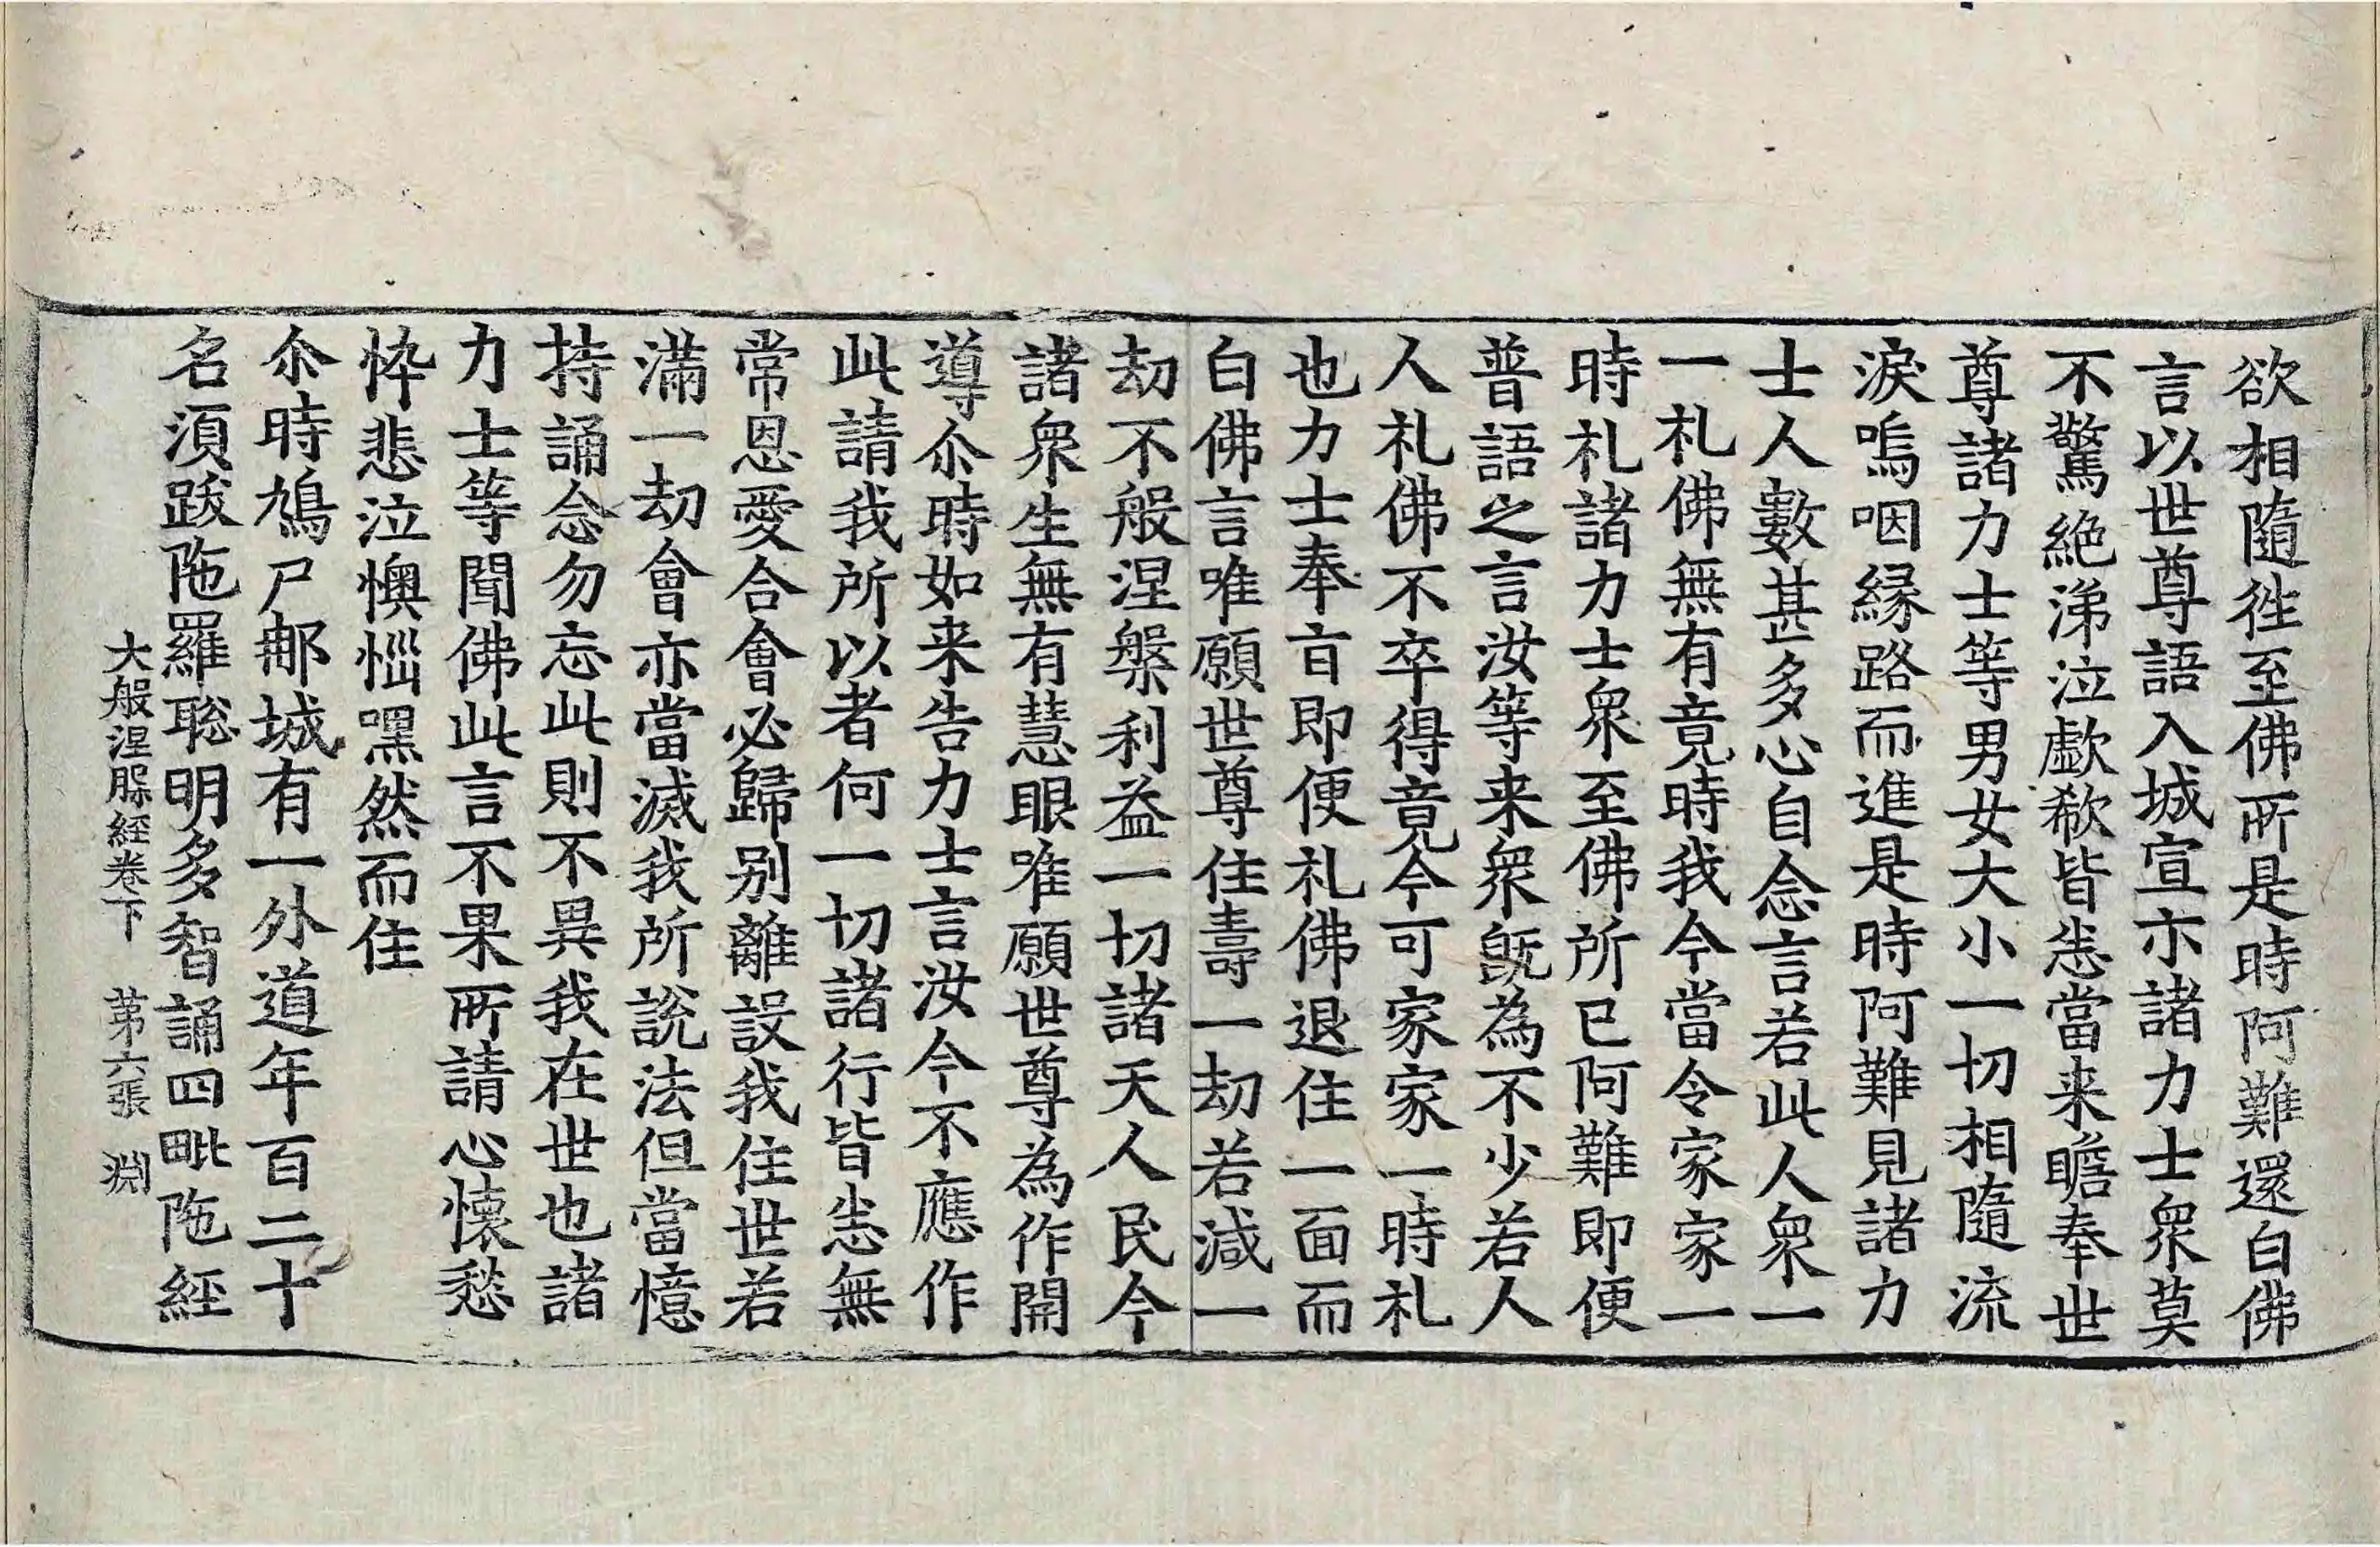 欲相隨徃至佛所是時阿難還白佛
言以世尊語入城宣示諸力士衆莫
不驚絶涕泣歔欷皆悉當来瞻奉世
尊諸力士等男女大小一切相隨流
淚嗚咽緣路而進是時阿難見諸力
士人數甚多心自念言若此人衆一
一札佛無有竟時我今當令家家一
時札諸力士衆至佛所已阿難即便
普語之言汝等来衆旣為不少若人
人札佛不卒得竟今可家家一時札
也力士奉旨即便札佛退住一面而
白佛言唯願世尊住壽一劫若減一
劫不般涅槃利益一切諸天人民今
諸衆生無有慧眼唯願世尊為作開
導尒時如来告力士言汝今不應作
此請我所以者何一切諸行皆悉無
常恩愛合會必歸别離設我住世若
滿一劫會亦當滅我所說法但當憶
持誦念勿忘此則不異我在世也諸
力士等聞佛此言不果所請心懷愁
忰悲泣懊惱嘿然而住
尒時鳩尸那城有一外道年百二十
名湏跋陁羅聡明多智誦四毗陁經
大般涅槃經卷下 苐六張 淵